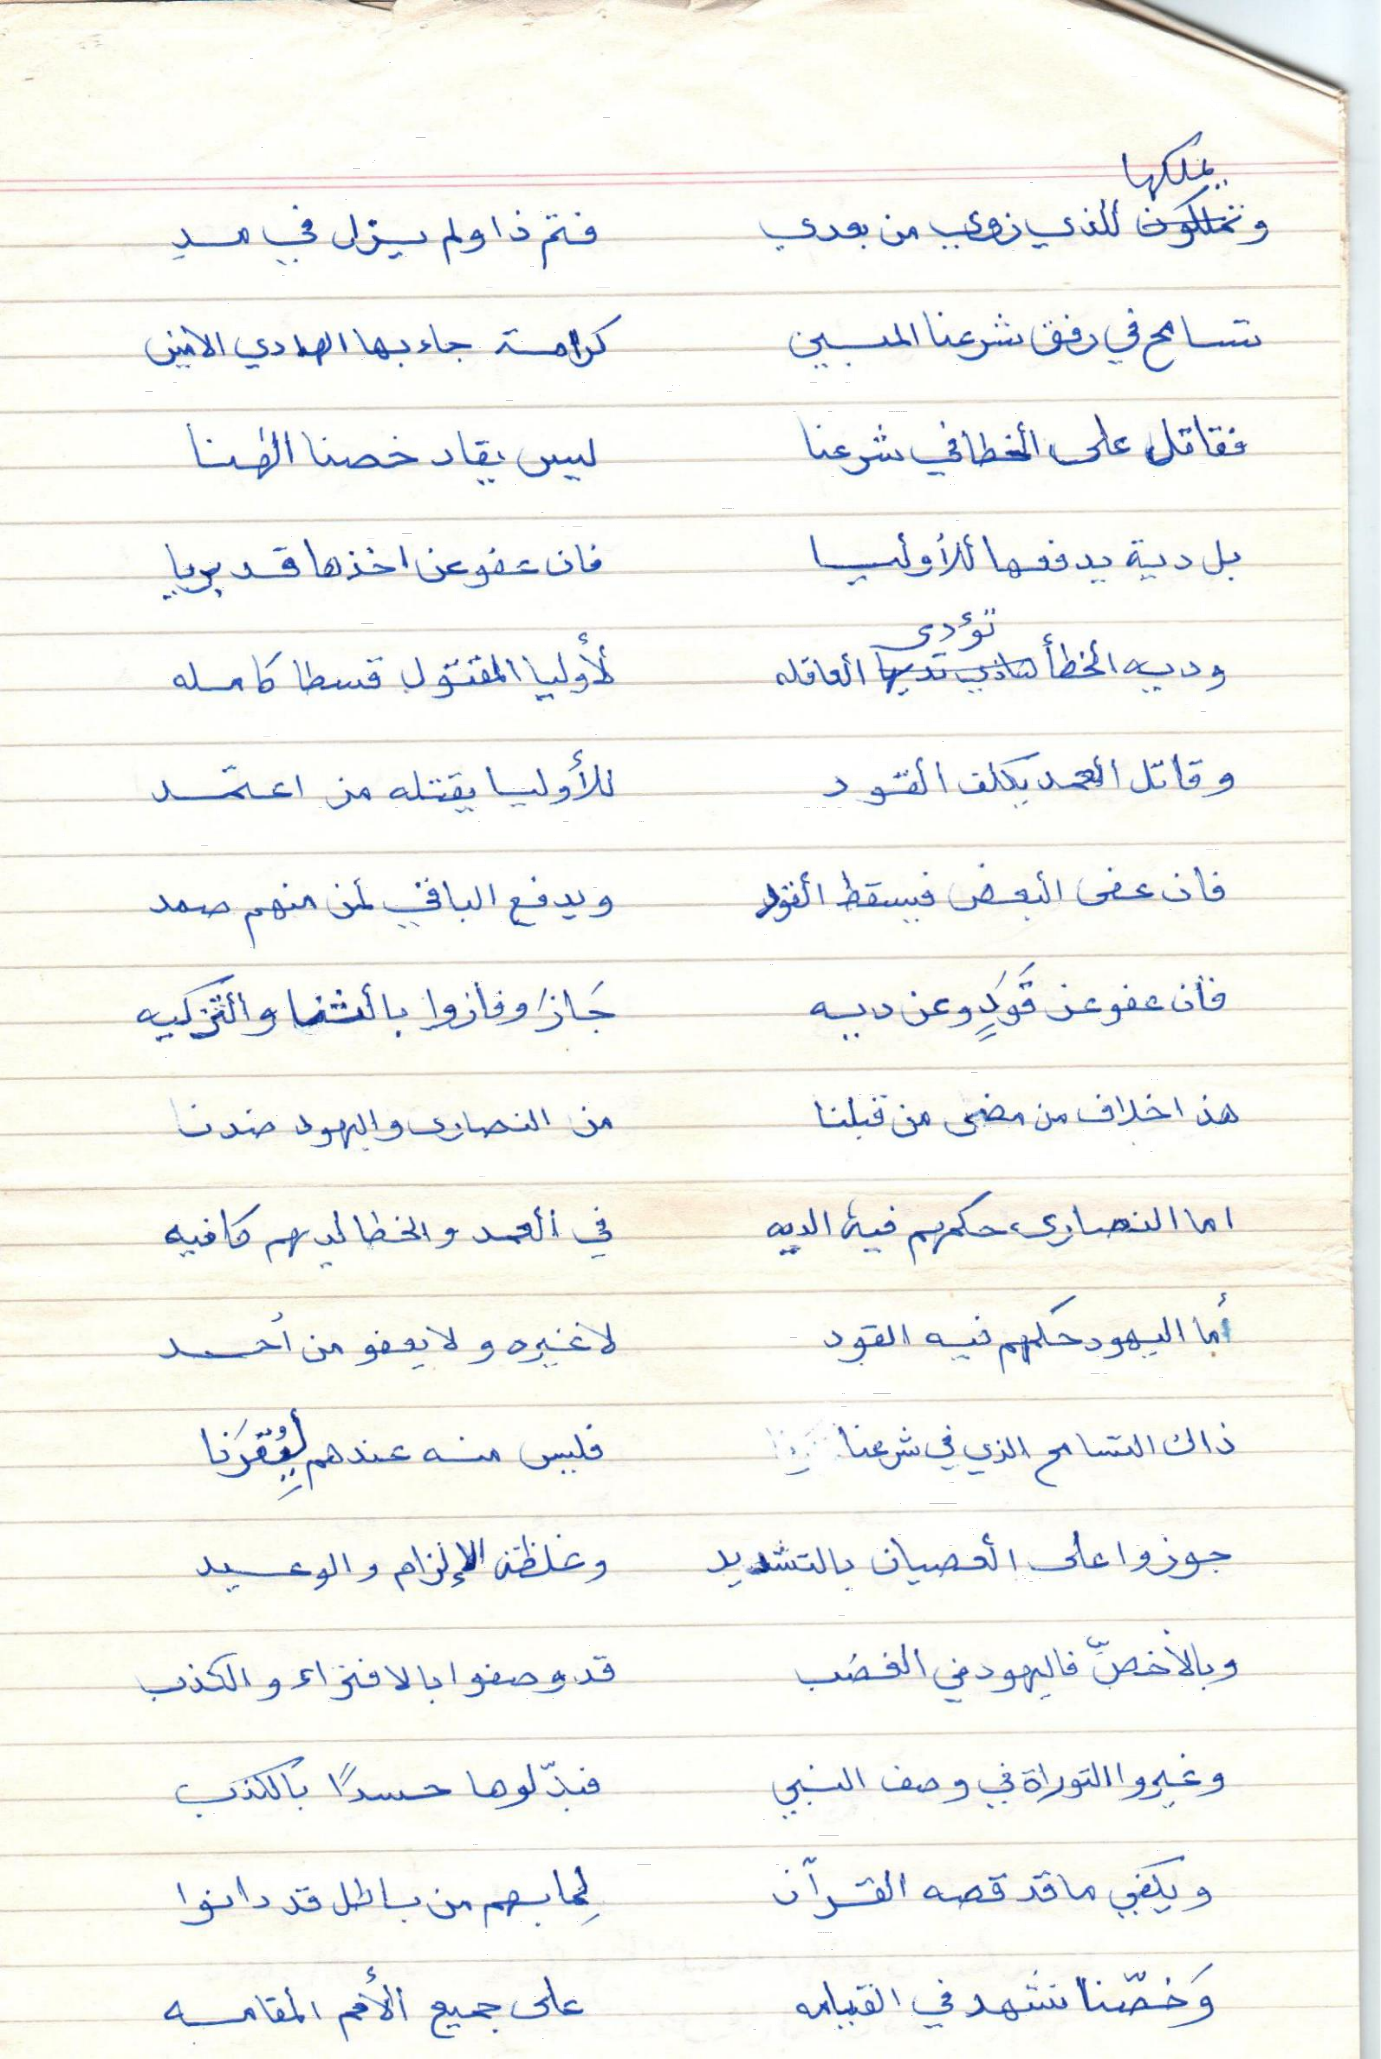 يملكها
و تملكون للذي زوي من بعدي فتم ذا ولم يزل في مدي
تسامح في رفق شرعنا المبين كرامة جاء بها الهادي الامين
فقاتل على الخطا في شرعنا ليس يقاد خصنا الهنا
بل دية يدفعها للأوليا فان عفو عن اخذها قد بريا
تؤدى
وديه الخطأ العاقله لأوليا المقتول قسطا كامله
وقاتل العمد يكلف القود للأوليا يقتله من اعتمد
فان عفى البعض فيسقط القود ويدفع الباقي لمن منهم صمد
فان عفو عن قَوَدٍ وعن ديه جَازَ وفازوا بالثنا والتزكيه
هذا خلاف من مضى من قبلنا من النصارى واليهود ضدنا
اما النصارى حكمهم فيه الديه في العمد والخطا لديهم كافيه
أما اليهود حكمهم فيه القود لا غيره ولا يعفو من أحد
ذاك التسامح الذي في شرعنا فليس منه عندهم
جوزوا على العصيان بالتشديد وغلظة الإلزام والوعيد
وبالأخصِّ فاليهود في الغضب قد وصفوا بالافتراء والكذب
وغيروا التوراة في وصف النبي فبدّلوها حسدًا بالكذب
ويكفي ما قد قصه القرآن لِما بهم من باطل قد دانوا
وَخصّنا نشهد في القيامه على جميع الأمم المقامه